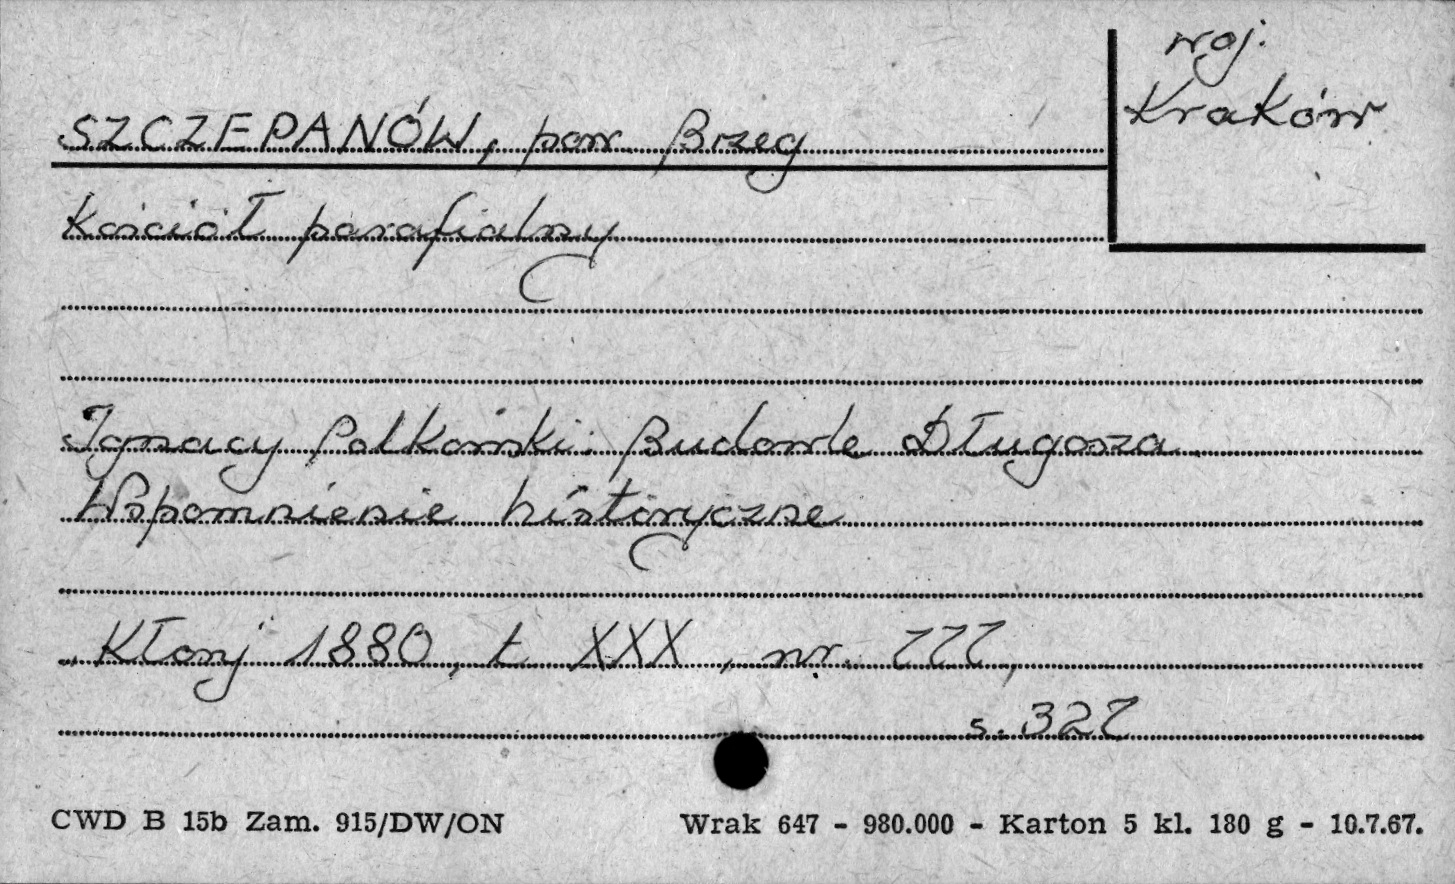 woj.
Kraków
SZCZEPANÓW, pow. Brzeg
Kościół parafialny
Ignacy Polkowski: Budowle Długosza.
Wspomnienie historyczne
"Kłosy" 1880, t. XXX, nr. 777,
s. 327
CWD B 15b Zam. 915/DW/ON Wrak 647 - 980.000 - Karton 5 kl. 180 g - 10.7.67.